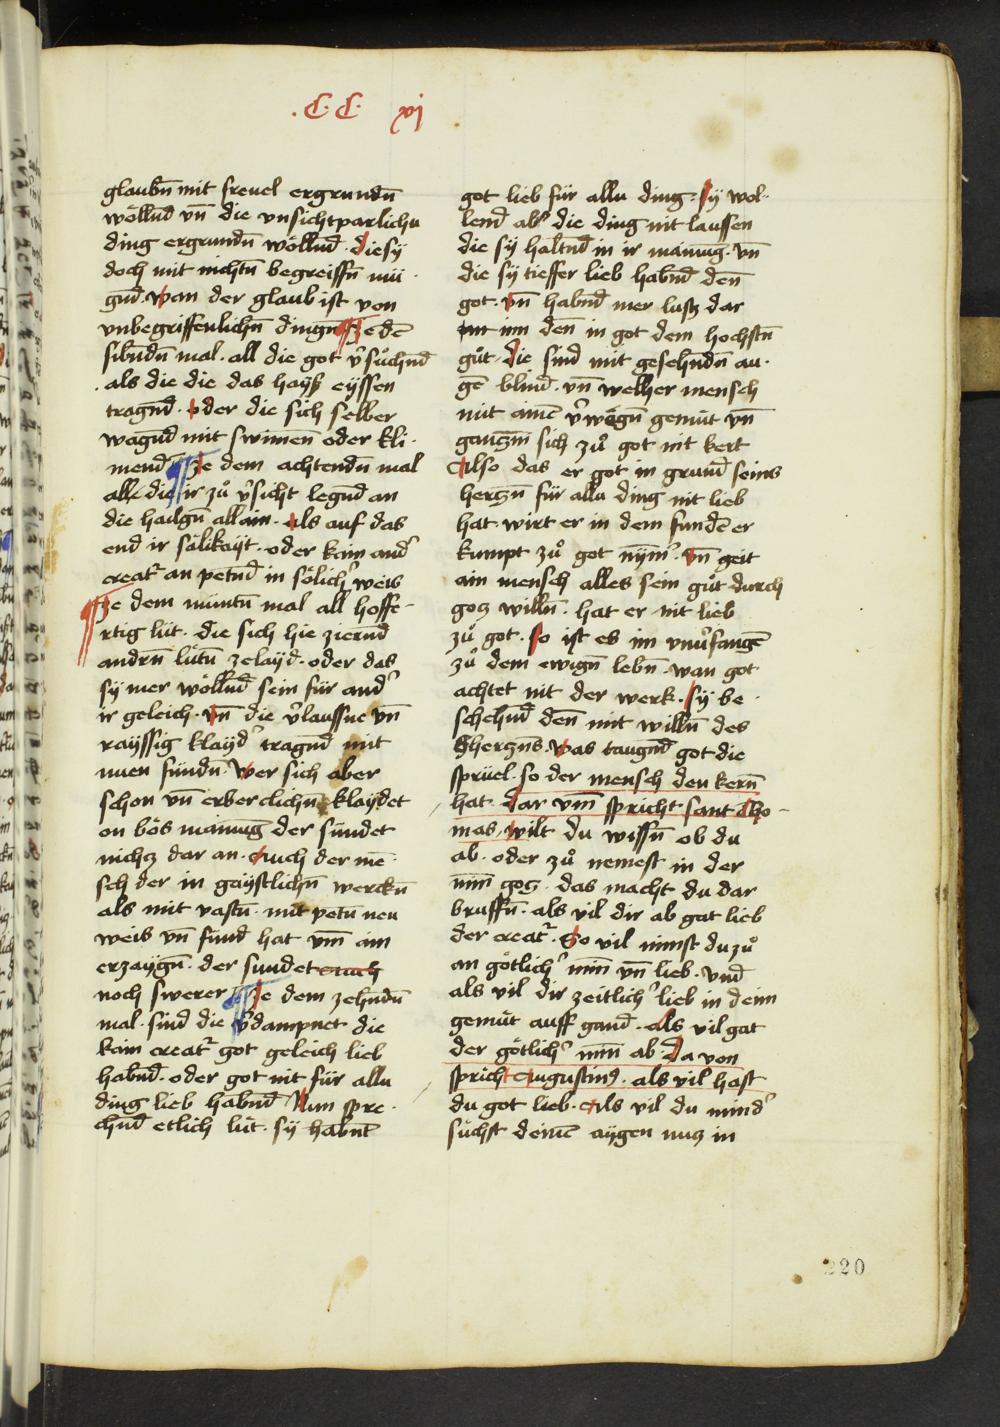 .C.C. xj
glaubn̄ mit freuel ergrundn̄
wöllnd̄ vn̄ die vnsichtparlichn
ding ergrundn̄ wöllnd̄. die sÿ
doch mit nichtn̄ begreiffn̄ mü-
gnd̄. wan der glaub ist von
vnbegriffenlichn̄ dingn̄ ¶ Ze dē
sibn̄dn̄ mal. all die got v̓sůchnd̄
. als die die das hayß eyssen
tragnd̄. oder die sich selber
wagnd̄ mit swimen̄ oder kli-
mend̄ ¶ Ze dem achtendn̄ mal
all die ir zů v̓sicht legnd̄ an
die hailgn̄ allain. Als auf das
end ir sälikayt. oder kain and̓
creat̓ an petnd̄ in sölich̓ weis
¶ Ze dem nūntn̄ mal all hoffe-
rtig lüt. die sich hie ziernd̄
andrn̄ lütn̄ zelayd. oder das
sÿ mer wöllnd̄ sein für and̓
ir geleich. vn̄ die v̓laussne vn̄
rayssig klayd̓ tragnd̄ mit
nuen fündn̄. Wer sich aber
schon vn̄ erberclichn̄ klaydet
on bös mainūg der sündet
nichcz dar an. Auch der mē-
sch der in gaystlichn̄ werckn̄
als mit vastn̄. mit petn̄ neu
weis vn̄ fünd hat vm̄ ain
erzaygn̄. der sundet auch
noch swerer ¶ Ze dem zehndn̄
mal. sind die v̓dampnet die
kain creat̓ got geleich lieb
habnd̄. oder got nit für allu
ding lieb habnd̄ Nun spre-
chnd̄ etlich lüt. sÿ habnt̄
got lieb für allu ding. sÿ wol-
lend̄ ab̓ die ding nit laussen
die sÿ haltnd̄ in ir mainūg. vn̄
die sÿ tieffer lieb habnd̄ den̄
got. vn̄ habnd̄ mer lustz dar
inn den̄ in got dem hochstn̄
gůt. die sind mit gesehndn̄ au-
gē blind. vn̄ welher mensch
mit aimē v̓wegn̄ gemüt vn̄
gantzm̄ sich zů got nit kert
Also das er got in grund̄ seins
hertzn̄ für allu ding nit lieb
hat. wirt er in dem funden er
kumpt zů got nÿm̄̓. vn̄ geit
ain mensch alles sein gůt durch
gotz willn̄. hat er nit lieb
zů got. so ist es im vnůfangē
zů dem ewign̄ lebn̄. wan got
achtet nit der werk. sÿ be-
schehnd̄ den̄ mit willn̄ des
hertzns̄. was taugnd̄ got die
sprüel. so der mensch den kern̄
hat. Dar vm̄ spricht sant Tho-
mas. wilt du wissn̄ ob du
ab. oder zů nemest in der
min̄ gotz. das macht du dar
bruffn̄. als vil dir ab gat lieb
der creat̓. So vil nimst du zů
an götlich̓ min̄ vn̄ lieb. vnd̄
als vil dir zeitlich̓ lieb in deim
gemüt auff gand̄. als vil gat
der götlich̓ min̄ ab. Da von
spricht Augustinꝰ. als vil hast
du got lieb. Als vil du mind̓
süchst deinē aygen nutz in
220